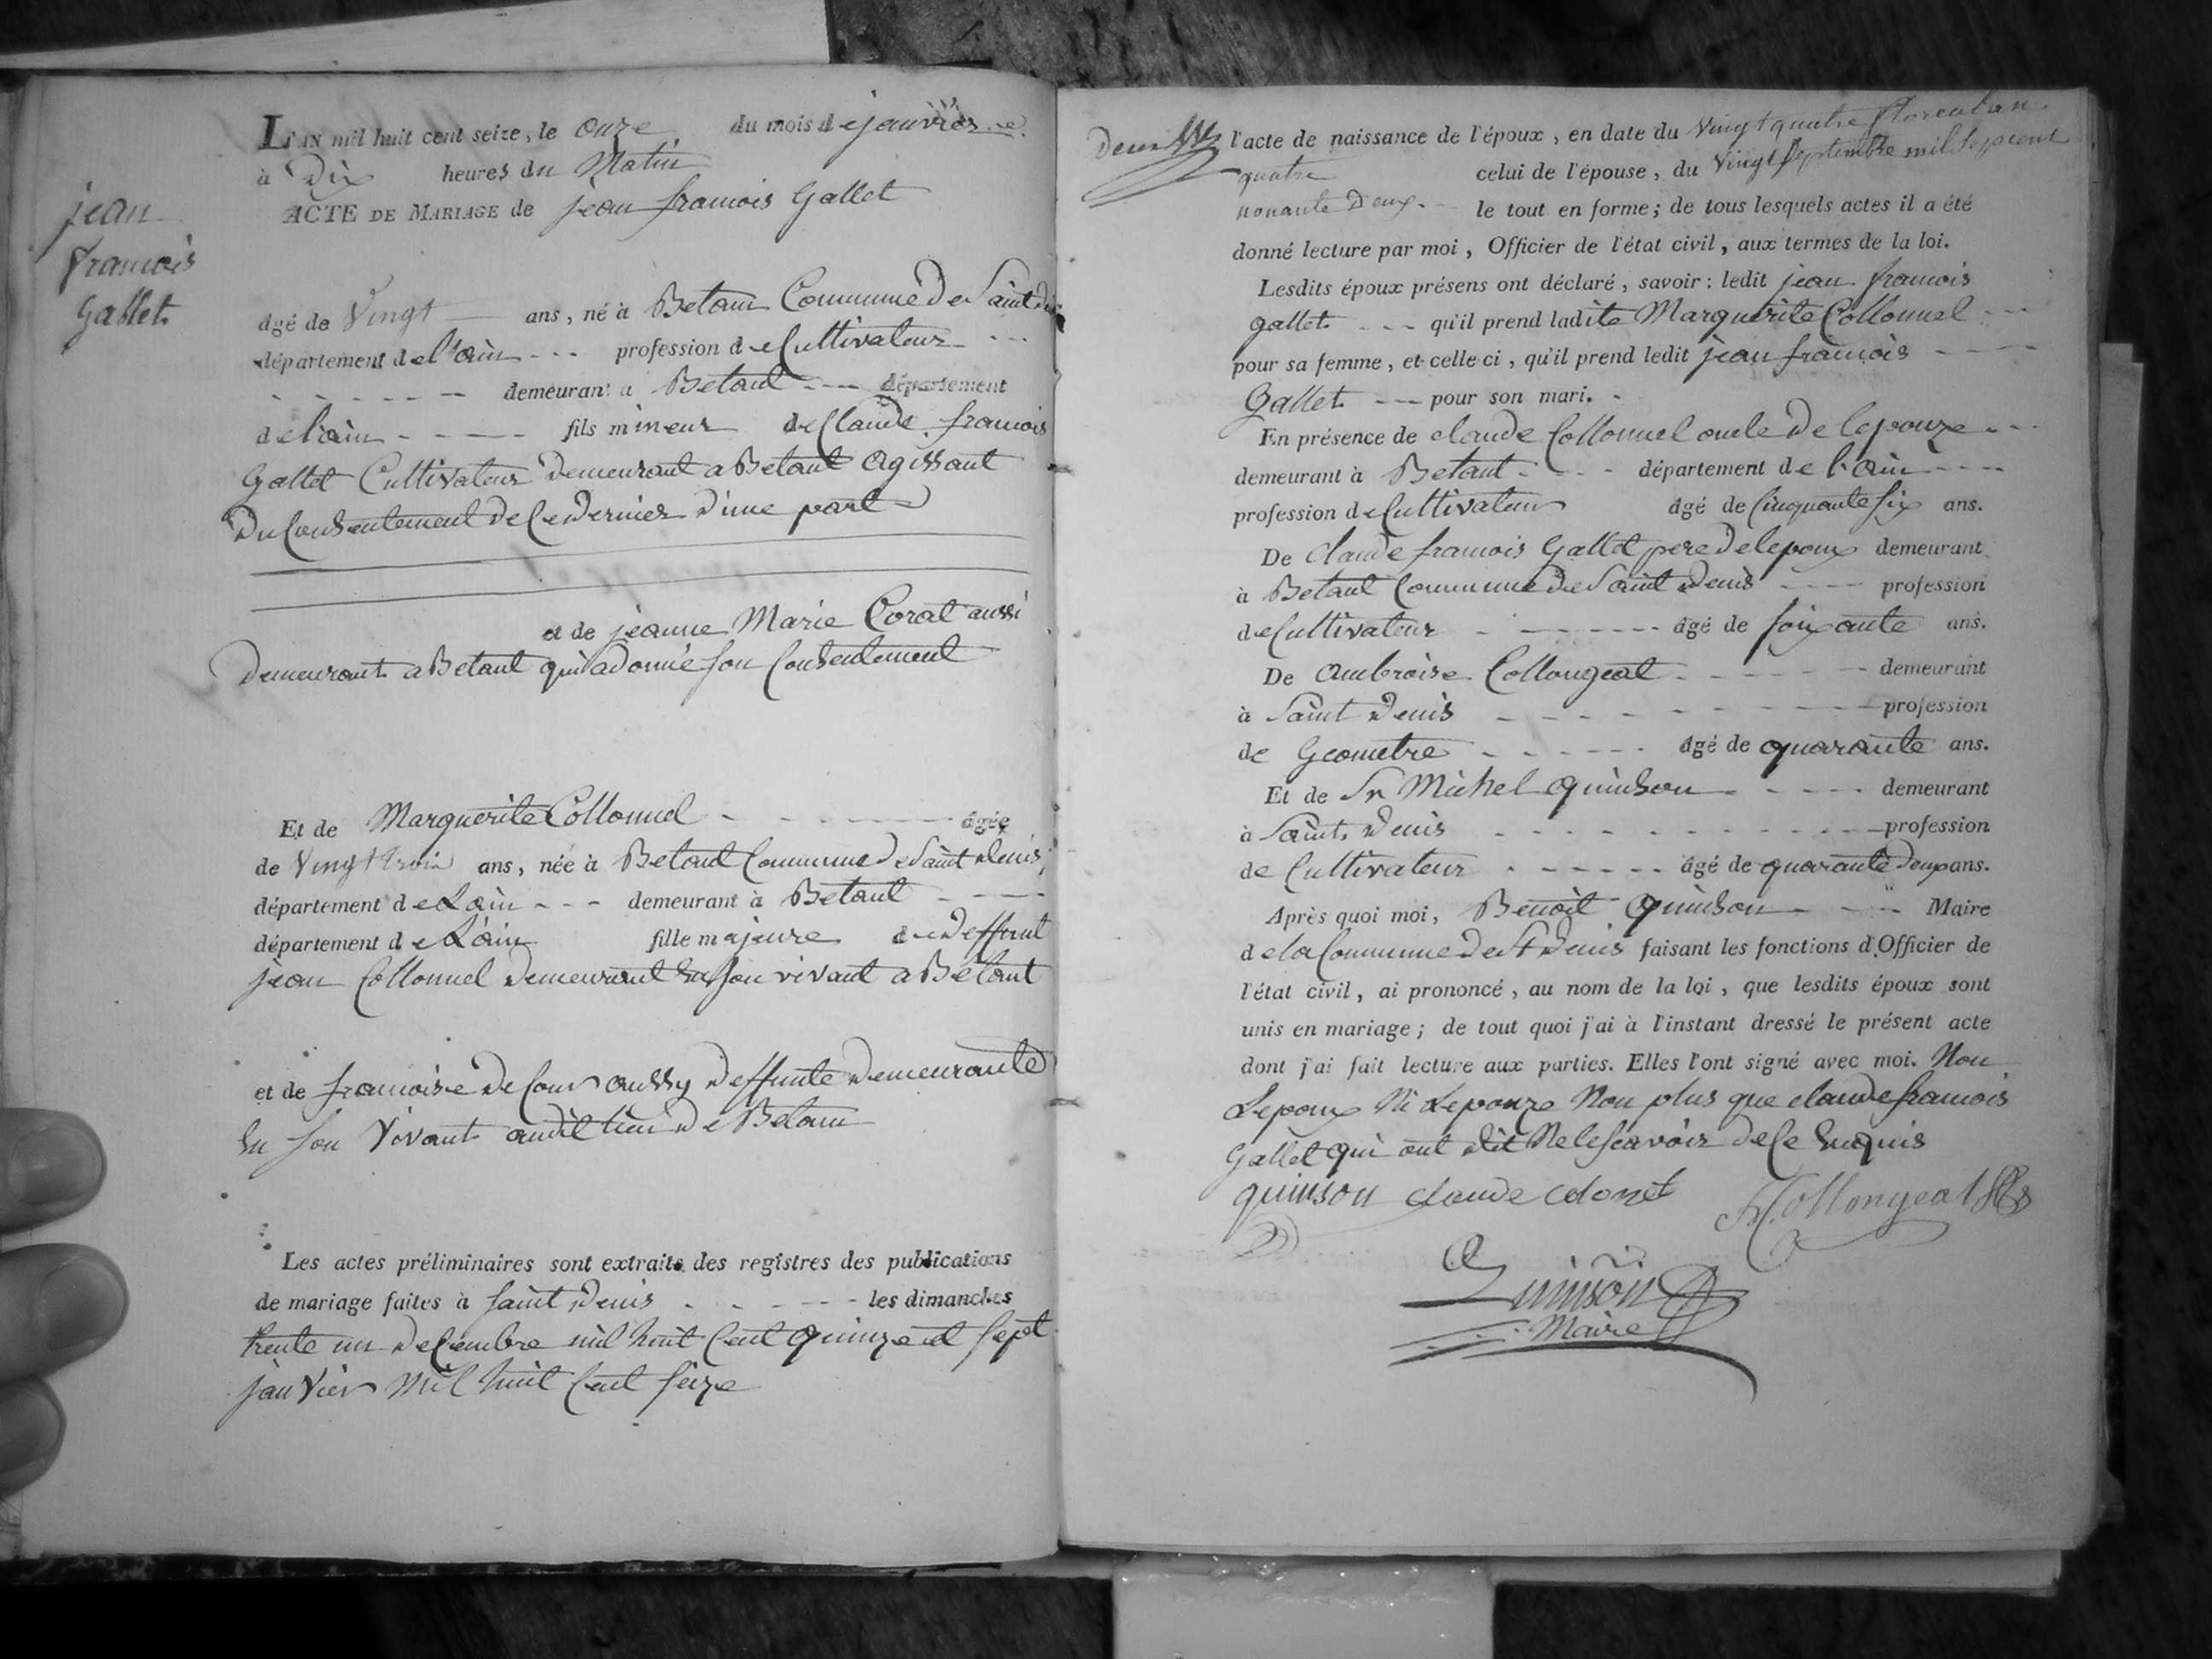 L'AN mil huit cent seize, le onze du mois de janvier
à Dix heures du Matin
ACTE DE MARIAGE de jean francois Gallet
jean
francois
Gallet
âgé de Vingt ans, né à Betan Commune de Saint
département de l'ain profession de Cultivateur
demeurant a Betant département
de l'ain fils mineur de Claude francois
Gallet Cultivateur demeurant a Betant agissant
du Consentement de Ce dernier d'une part
et de jeanne Marie Corat aussi
demeurant a Betant qui a donné son Consentement
Et de Marguerite Collonnel âgée
de Vingt trois ans, née à Betant Commune de Saint denis
département de L'ain demeurant à Betant
département de L'ain fille majeure de deffunt
jean Collonnel demeurant En son vivant a Betant
et de francoise de Cour aussy deffunte demeurante
En son Vivant audit lieu de Betan
Les actes préliminaires sont extraits des registres des publications
de mariage faites à Saint Denis les dimanches
trente un decembre mil huit Cent quinze et sept
janvier mil huit Cent seize
l'acte de naissance de l'époux, en date du Vingt quatre floreal an
quatre celui de l'épouse, du Vingt Septembre mil sept cent
nonante deux. le tout en forme; de tous lesquels actes il a été
donné lecture par moi, Officier de l'état civil, aux termes de la loi.
Lesdits époux présens ont déclaré, savoir: ledit jean francois
gallet qu'il prend ladite Marguerite Collonnel
pour sa femme, et celle-ci, qu'il prend ledit jean francois
Gallet pour son mari.
En présence de claude Collonnel oncle de lepouze
demeurant à Betant département de l'ain
profession de Cultivateur âgé de Cinquante six ans.
De Claude francois Gallet pere de lepoux demeurant
à Betant Commune de Saint Denis profession
de Cultivateur âgé de soixante ans.
De ambroise Collongeat demeurant
à Saint Denis profession
de Geometre âgé de quarante ans.
Et de Sr Michel quinson demeurant
à Saint Denis profession
de Cultivateur âgé de quarante deux ans.
Après quoi moi, Benoit quinson Maire
de la Commune de St Denis faisant les fonctions d'Officier de
l'état civil, ai prononcé, au nom de la loi, que lesdits époux sont
unis en mariage; de tout quoi j'ai à l'instant dressé le présent acte
dont j'ai fait lecture aux parties. Elles l'ont signé avec moi. Non
Lepoux Ni Lepouze Non plus que claude francois
Gallet qui ont dit Ne le scavoir de Ce Enquis
quinson claude colonet Collongeat
Quinson
Maire